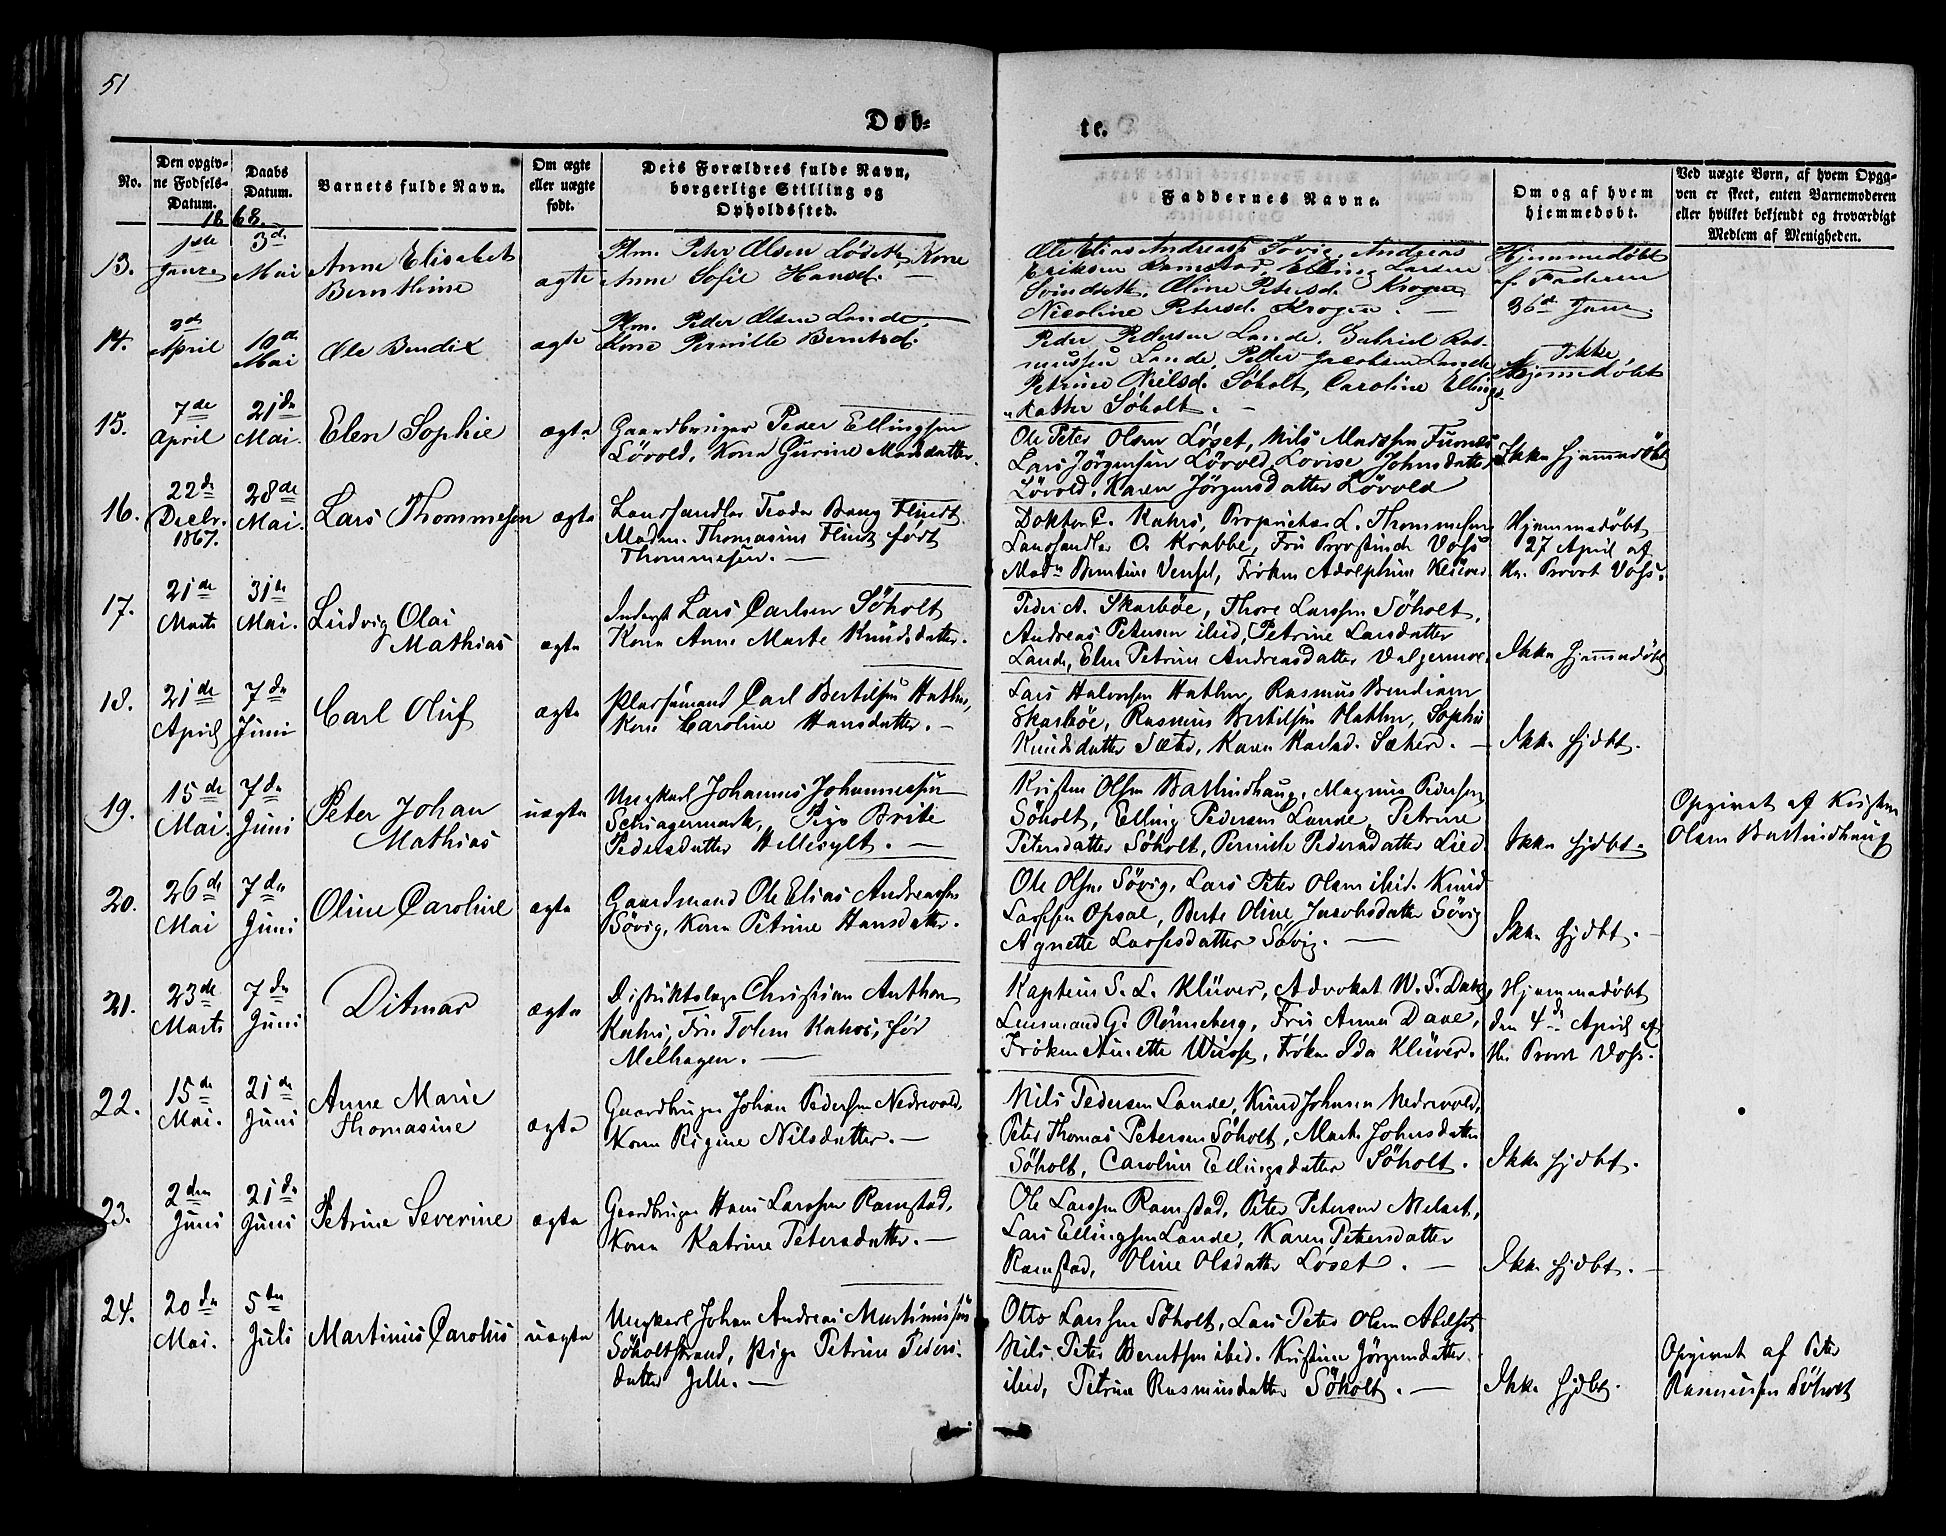 51
Døb-
te.
No.
Den opgiv-
ne Fødsels-
Datum.
Daabs
Datum.
Barnets fulde Navn.
Om ægte
eller uægte
født.
Dets Forældres fulde Navn,
borgerlige Stilling og
Opholdssted.
Faddernes Navne.
Om og af hvem
hjemmedøbt.
Ved uægte Børn, af hvem Opga-
ven er skeet, enten Barnemoderen
eller hvilket bekjendt og troværdigt
Medlem af Menigheden.
1868.
13.
1ste
3d
Mai
Anne Elisabet
Bernthine
ægte
Peter Olsen Løset, Kone
Anne Sofie Hansd.
Ole Elias Andreas Søvig, Andreas
Eriksen Ramstad, Elling Larsen
Svindseth, Oline Petersd. Krogen
Nicoline Petersd. Krogen.
Hjemmedøbt
af Faderen
14.
3d
April
10de
Mai
Ole Bendix
ægte
Peder Olsen Lande,
Kone Pernille Berntsd.
Peder Pedersen Lande, Gabriel Ras-
mussen Lande, Peder Jacobsen Lande
Petrine Nielsd. Søholt, Caroline Ellings-
datter Søholt.
Ikke
Hjemmedøbt
15.
7de
April
21de
Mai.
Elen Sophie
ægte
Gaardbruger Peder Ellingsen
Løvold, Kone Gurine Madsdatter.
Ole Peter Olsen Løset, Nils Madssen Furnes
Lars Jörgensen Lövold, Lovise Johnsdatter
Lövold, Karen Jörgensdatter Lövold
Ikke Hjemmedöbt
16.
22de
Decbr.
1867.
28de
Mai.
Lars Thommesen
ægte
Landhandler Peder Bang Flindt
Madm. Thomasine Flindt født
Thommesen.
Doktor C. Kahrs, Proprietær L. Thommesen
Landhandler O. Krabbe, Fru Provstinde Voss
Madm Berntine Vensel, Frøken Adolphine Klüver
Hjemmedöbt
27 April af
Hr. Provst Voss.
17.
21de
Marts
31te
Mai.
Ludvig Olai
Mathias
ægte
Inderst Lars Carlsen Söholt
Kone Anne Marte Knudsdatter.
Peder A. Skarböe, Thore Larssen Söholt,
Andreas Petersen ibid, Petrine Larsdatter
Lande, Elen Petrine Andreasdatter Valgermoe.
Ikke Hjemmedöbt
18.
21de
April
7de
Juni
Carl Oluf
ægte
Pladsemand Carl Bertilsen Hathen,
Kone Caroline Hansdatter.
Lars Halvorsen Hathen, Rasmus Bendixen
Skarböe, Rasmus Bertilsen Hathen, Sophie
Knudsdatter Sæter, Karen Karlsd. Sæter.
Ikke Hjdbt.
19.
15de
Mai.
7de
Juni
Peter Johan
Mathias
uægte
Ungkarl Johannes Johannessen
Pige Brite
Pedersdatter Hellesylt.
Kristen Olsen Ballindhaug, Magnus Pedersen
Söholt, Elling Pedersen Lande, Petrine
Petersdatter Söholt, Pernille Pedersdatter Lied
Ikke Hjdbt.
Opgivet af Kristen
Olsen Ballindhaug
20.
26de
Mai
7de
Juni
Oline Caroline
ægte
Gaardmand Ole Elias Andreassen
Sövig, Kone Petrine Hansdatter.
Ole Olsen Sövig, Lars Peter Olsen ibid. Knud
Larssen Opsal, Berte Oline Jacobsdatter Sövig
Agnette Larssdatter Sövig.
Ikke Hjdbt.
21.
23de
Marts
7de
Juni
Ditmar
ægte
Distriktslæge Christian Anthon
Kahrs, Fru Kahrs, fød
Melhagen.
Kaptein S. L. Klüver, Advokat W. S. Dave,
Lensmand G. Rønneberg, Fru Anna Dave,
Fröken Anette Wüsse, Fröken Ida Klüver.
Hjemmedöbt
den 4de April af
Hr. Provst Voss.
22.
15de
Mai.
21de
Juni
Anne Marie
Thomasine
ægte
Gaardbruger Johan Pedersen Nedrevold,
Kone Rigine Nilsdatter.
Nils Pedersen Lande, Knud Johnsen Nedrevold,
Peter Thomas Petersen Söholt, Marte Johnsdatter
Söholt, Caroline Ellingsdatter Söholt.
Ikke Hjdbt.
23.
2den
Juni
21de
Juni
Petrine Severine
ægte
Gaardbruger Hans Larssen Ramstad,
Kone Katrine Petersdatter.
Ole Larssen Ramstad, Peter Petersen Melset,
Lars Ellingsen Lande, Karen Petersdatter
Ramstad, Oline Olsdatter Løset.
Ikke Hjdbt.
24.
20de
Mai.
5te
Juli
Martinus Carolus
uægte
Ungkarl Johan Andreas Martinussen
Söholtstrand, Pige Petrine Peders-
datter
Otto Larssen Söholt, Lars Peter Olsen Abelset
Nils Peter Berntsen ibid. Kristine Jörgensdatter
ibid, Petrine Rasmusdatter Söholt.
Ikke Hjdbt.
Opgivet af Peter
Rasmussen Söholt